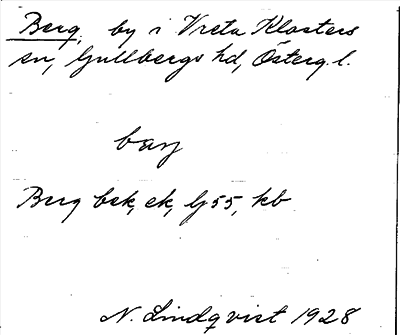 Berg, by i Vreta Klosters
sn, Gullbergs hd, Österg. l.
barj
Berg bek, ek, Gj 55, kb
N. Lindqvist 1928